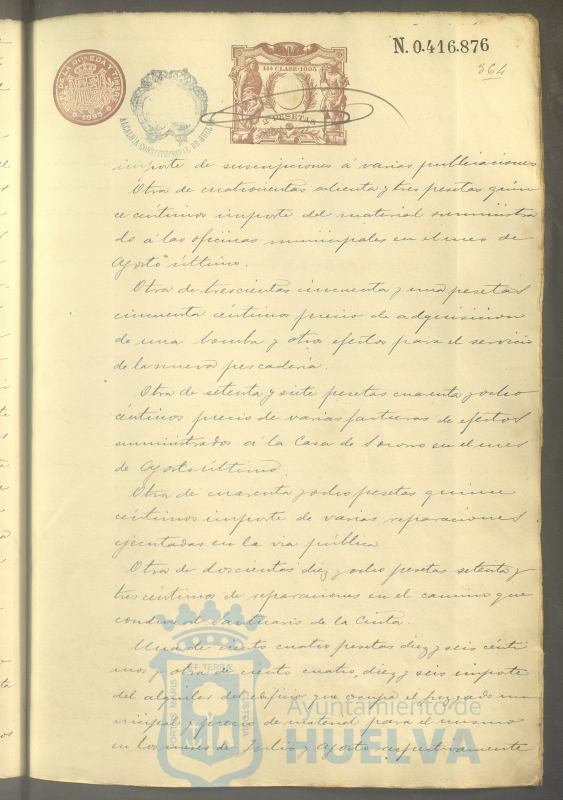 N. 0.416.876
364
11ª CLASE-1895
2 PESETAS
1895
ALCALDIA CONSTITUCIONAL DE HUELVA
importe de suscripciones á varias publicaciones
Otra de cuatrocientas ochenta y tres pesetas quin
ce céntimos importe del material suministra
do á las oficinas municipales en el mes de
Agosto último.
Otra de trescientas cincuenta y una pesetas
cincuenta céntimos precio de adquisicion
de una bomba y otros efectos para el servicio
de la nueva pescadería.
Otra de setenta y siete pesetas cuarenta y ocho
céntimos precio de varias facturas de efectos
suministrados á la Casa de Socorro en el mes
de Agosto último.
Otra de cuarenta y ocho pesetas quince
céntimos importe de varias reparaciones
ejecutadas en la via pública
Otra de doscientas diez y ocho pesetas setenta y
tres céntimos de reparaciones en el camino que
conduce al Santuario de la Cinta.
Una de ciento cuatro pesetas diez y seis cénti
mos y otra de ciento cuatro, diez y seis importe
del alquiler del edificio que ocupa el juzgado mu
nicipal y precio de material para el mismo
en los meses de Julio y Agosto respectivamente
PORTUS MARIS ET TERRE CUSTODIA
Ayuntamiento de
HUELVA